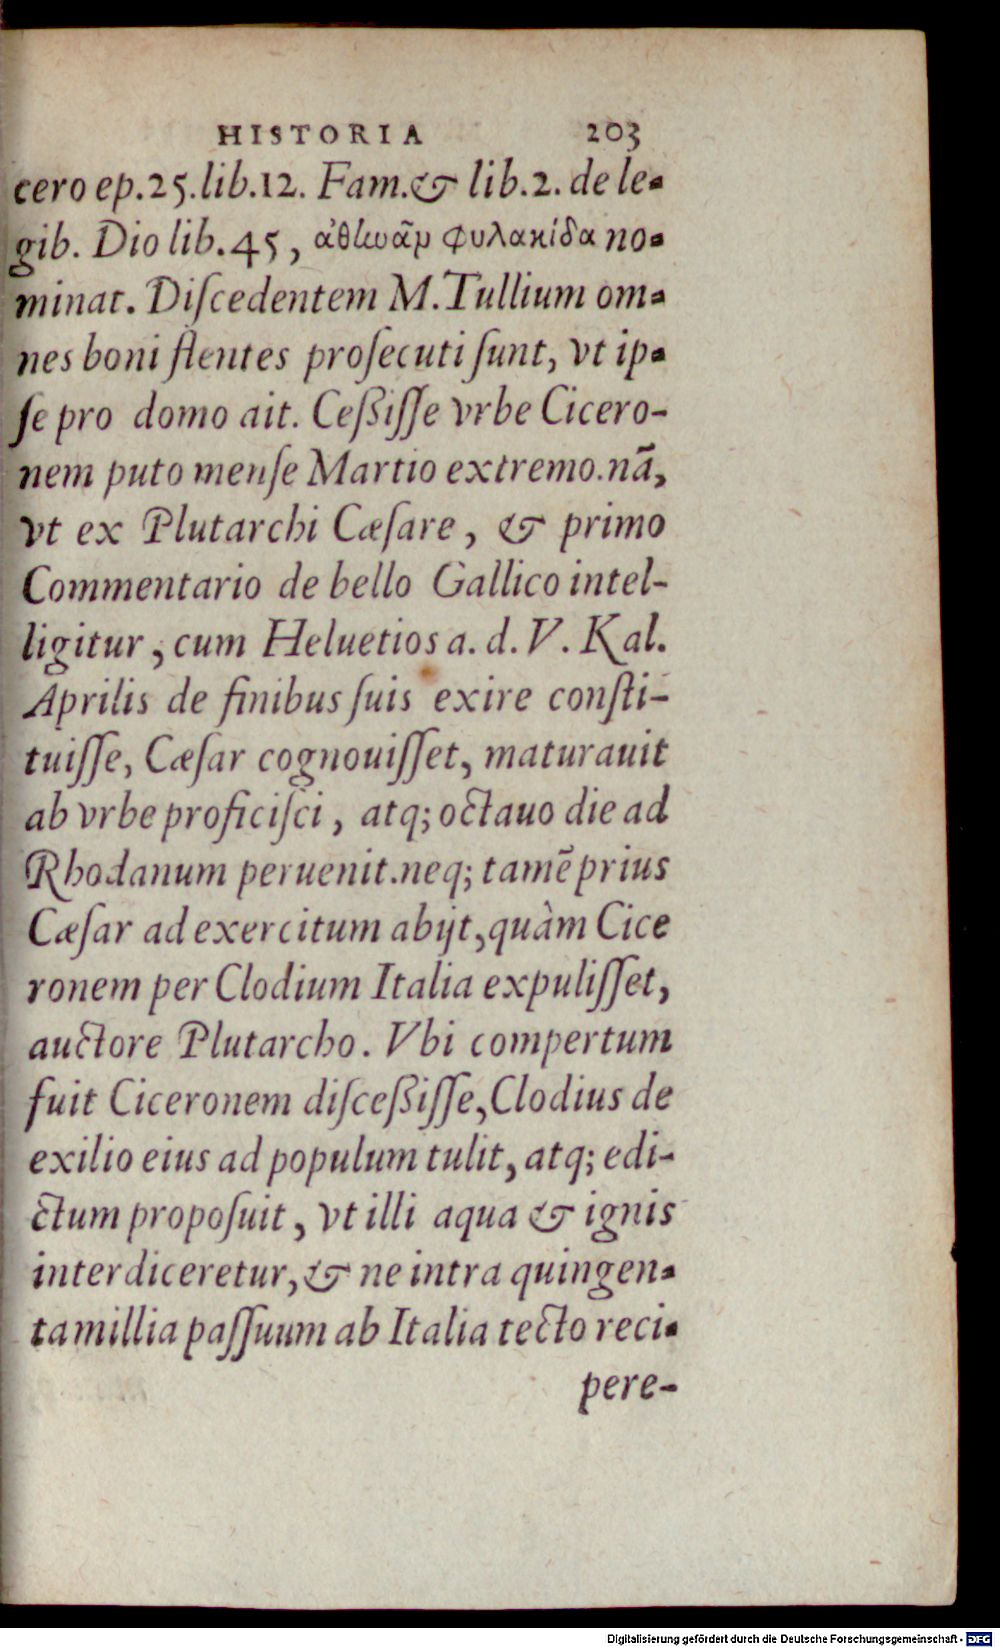 HISTORIA 203
cero ep.25.lib.12. Fam.& lib.2. de le-
gib. Dio lib.45, ἀθηνᾶν φυλακίδα no-
minat. Diſcedentem M.Tullium om-
nes boni flentes proſecuti ſunt, vt ip-
ſe pro domo ait. Ceßiſſe vrbe Cicero-
nem puto menſe Martio extremo.nã,
vt ex Plutarchi Cæſare, & primo
Commentario de bello Gallico intel-
ligitur, cum Heluetios a. d. V. Kal.
Aprilis de finibus ſuis exire conſti-
tuiſſe, Cæſar cognouiſſet, maturauit
ab vrbe proficiſci, atq; octauo die ad
Rhodanum peruenit.neq; tamẽ prius
Cæſar ad exercitum abijt,quàm Cice
ronem per Clodium Italia expuliſſet,
auctore Plutarcho. Vbi compertum
fuit Ciceronem diſceßiſſe,Clodius de
exilio eius ad populum tulit, atq; edi-
ctum propoſuit, vt illi aqua & ignis
interdiceretur,& ne intra quingen-
ta millia paſſuum ab Italia tecto reci-
pere-
Digitalisierung gefördert durch die Deutsche Forschungsgemeinschaft - DFG